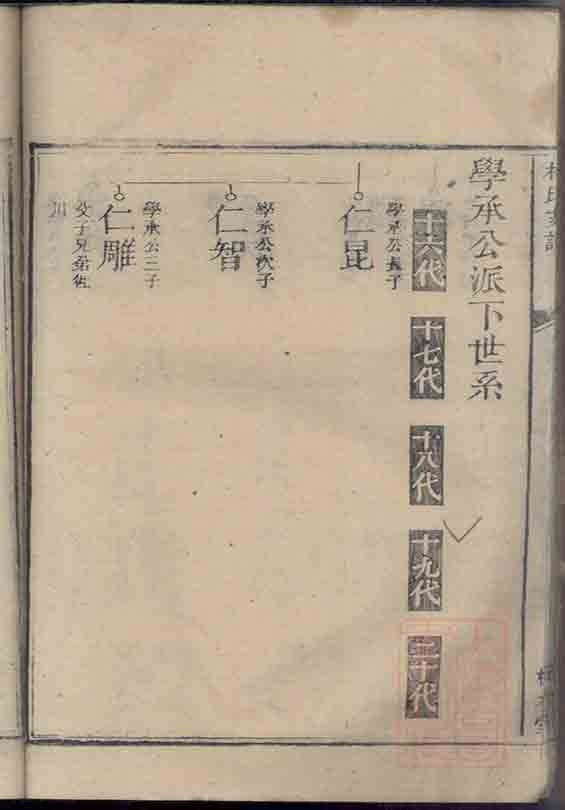 學承公派下世系
十六代
十七代
十八代
十九代
二十代
學承公長子
仁昆
學承公次子
仁智
學承公三子
仁雕
父子兄弟徙
川